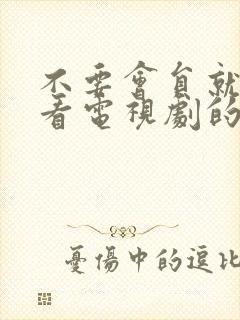 不要會員就
看電視劇的
憂傷中的逗比